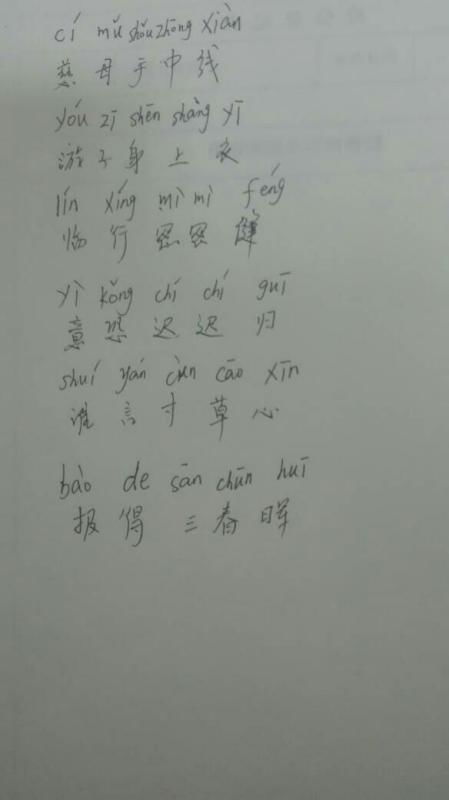 cí mǔ shǒu zhōng xiàn
慈母手中线
yóu zī shēn shàng yī
游子身上衣
lín xíng mì mì féng
临行密密缝
yì kǒng chí chí guī
意恐迟迟归
shuí yán cùn cāo xīn
谁言寸草心
bào de sān chūn huī
报得三春晖